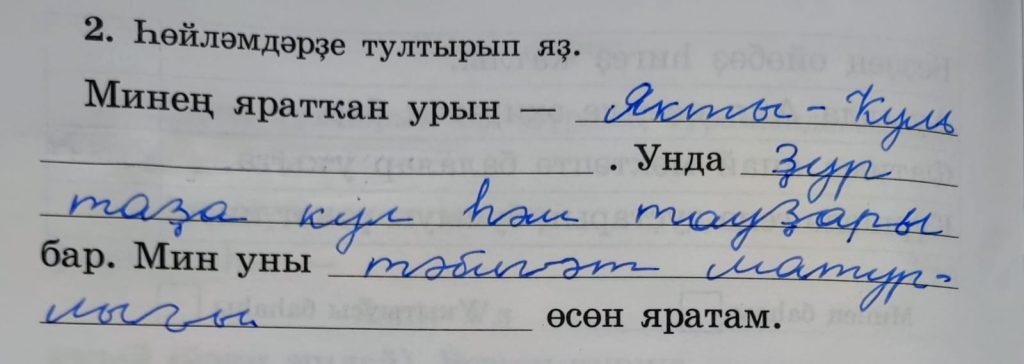 2. Һөйләмдәрҙе тултырып яҙ.
Минең яратҡан урын — Якты-Куль
. Унда ҙур
таҙа күл һәм тауҙары
бар. Мин уны тәбиғәт матур-
лығы өсөн яратам.